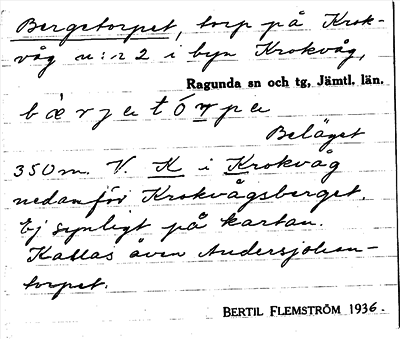 Bergetorpet, torp på Krok-
våg n:r 2 i byn Krokvåg,
Ragunda sn och tg, Jämtl. län.
bæ̀rjetórpe
Beläget
350 m. V. K i Krokvåg
nedanför Krokvågsberget.
Ej synligt på kartan.
Kallas även Andersjohan-
torpet.
BERTIL FLEMSTRÖM 1936.